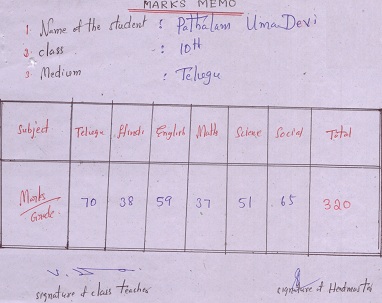 MARKS MEMO
1. Name of the student : Pathalam Uma Devi
2. class : 10th
3. Medium : Telugu
Subject Telugu Hindi English Math Sciene Social Total
Marks/Grade 70 38 59 37 51 65 320
signature of class teacher signature of Headmaster